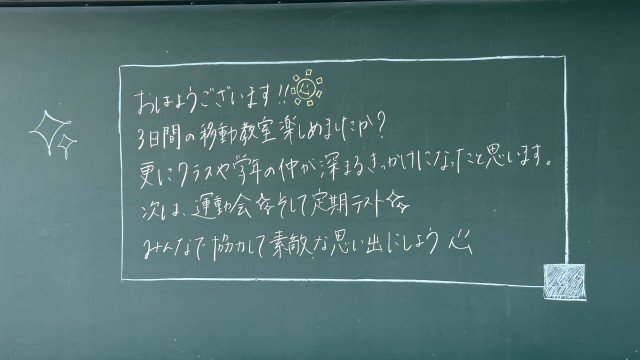 おはようございます!!
3日間の移動教室楽しめましたか?
更にクラスや学年の仲が深まるきっかけになったと思います。
次は、運動会☆そして定期テスト☆
みんなで協力して素敵な思い出にしよう